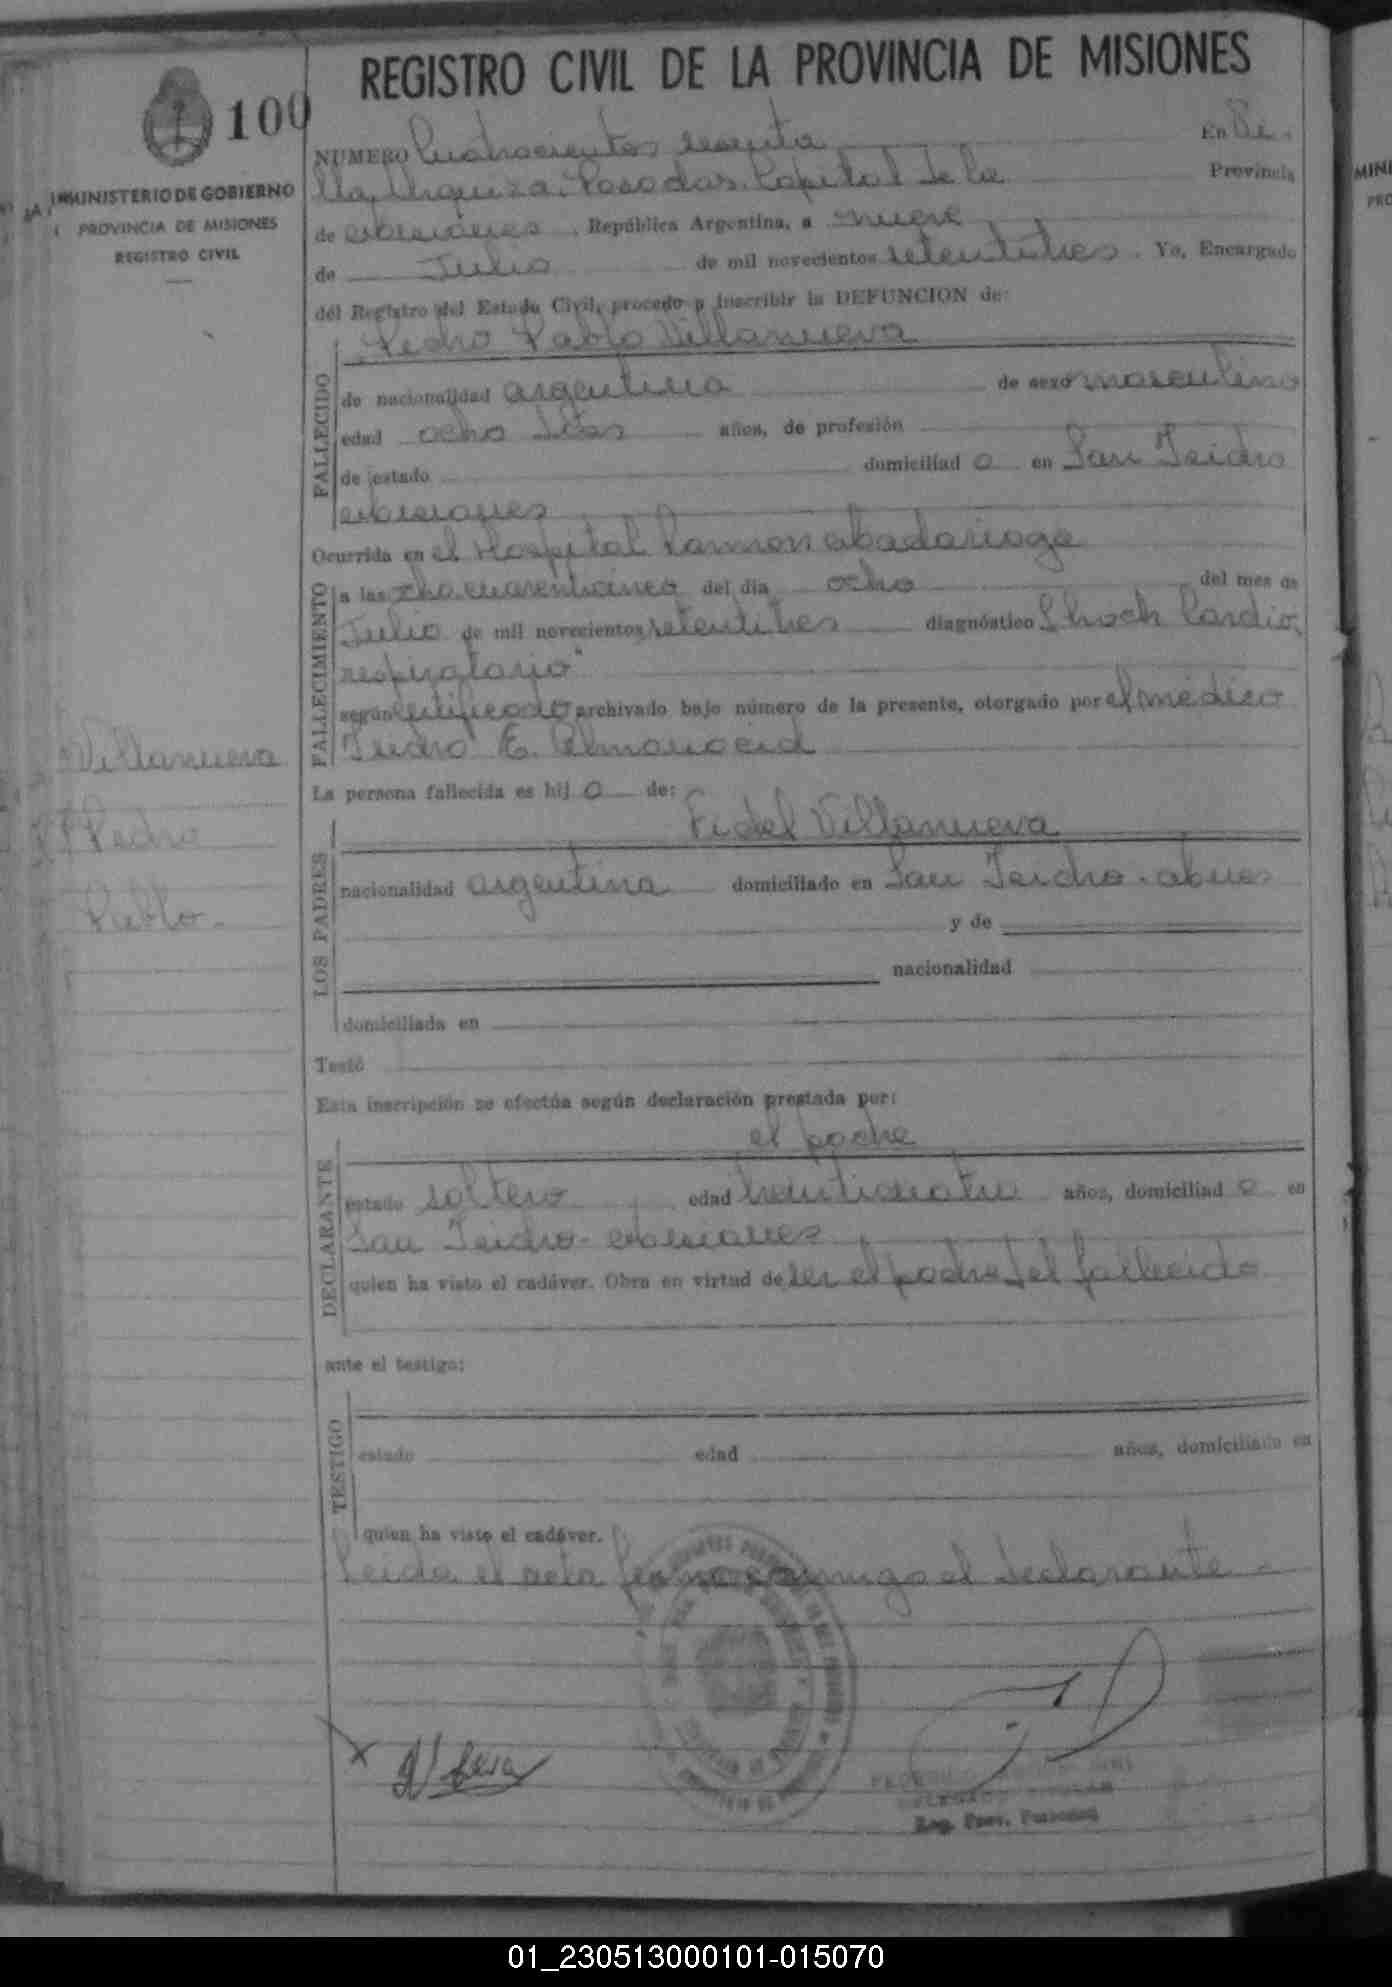 REGISTRO CIVIL DE LA PROVINCIA DE MISIONES
100
MINISTERIO DE GOBIERNO
PROVINCIA DE MISIONES
REGISTRO CIVIL
NUMERO Cuatrocientos sesenta En Vi-
lla Urquiza, Posadas, Capital de la Provincia
de Misiones, República Argentina, a nueve
de Julio de mil novecientos setentitres. Yo, Encargado
del Registro del Estado Civil, procedo a inscribir la DEFUNCION de:
Pedro Pablo Villanueva
FALLECIDO
de nacionalidad argentina de sexo masculino
edad ocho días años, de profesión
de estado domiciliad o en San Isidro
Misiones
Ocurrida en el Hospital Ramon Madariaga
FALLECIMIENTO
a las ocho cuarenticinco del día ocho del mes de
Julio de mil novecientos setentitres diagnóstico Shock Cardio,
respiratorio"
según certificado archivado bajo número de la presente, otorgado por el médico
Isidro E. Almouacid
Villanueva
Pedro
Pablo.-
La persona fallecida es hij o de:
LOS PADRES
Fidel Villanueva
nacionalidad argentina domiciliado en San Isidro - Mnes
y de
nacionalidad
domiciliada en
Testó
Esta inscripción se efectúa según declaración prestada por:
DECLARANTE
el padre
estado soltero edad veinticuatro años, domiciliad o en
San Isidro - Misiones
quien ha visto el cadáver. Obra en virtud de ser el padre del fallecido
ante el testigo:
TESTIGO
estado edad años, domiciliado en
quien ha visto el cadáver.
Leida el acta firma conmigo el declarante -
Reg. Prov. Personas
01_230513000101-015070